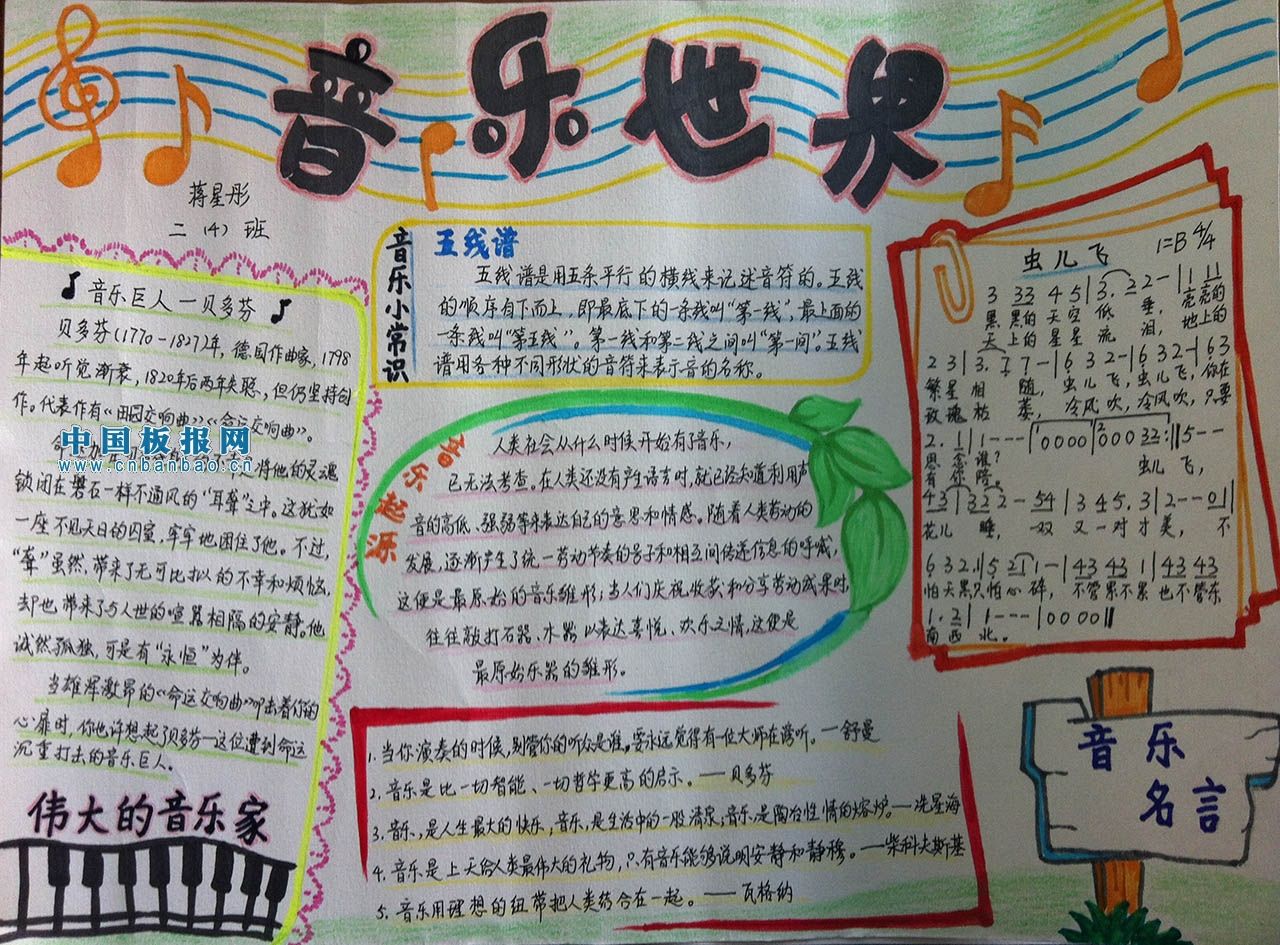 音乐世界
蒋星彤
二（4）班
音乐巨人—贝多芬
贝多芬(1770-1827)年，德国作曲家，1798
年起听觉渐衰，1820年后两年失聪，但仍坚持创
作。代表作有《田园交响曲》《命运交响曲》。
将他的灵魂
锁闭在磐石一样不通风的“耳聋”之中。这犹如
一座不见天日的囚室，牢牢地困住了他。不过，
“聋”虽然，带来了无可比拟的不幸和烦恼，
却也带来了与人世的喧嚣相隔的安静。他
诚然孤独，可是有“永恒”为伴。
当雄浑激昂的《命运交响曲》叩击着你的
心扉时，你也许想起了贝多芬—这位遭到命运
沉重打击的音乐巨人。
伟大的音乐家
中国板报网
www.cnbanbao.cn
音乐小常识
五线谱
五线谱是用五条平行的横线来记述音符的。五线
的顺序自下而上，即最底下的一条线叫“第一线”，最上面的
一条线叫“第五线”。第一线和第二线之间叫“第一间”。五线
谱用各种不同形状的音符来表示音的名称。
音乐起源
人类社会从什么时候开始有了音乐，
已无法考查。在人类还没有产生语言时，就已经知道利用声
音的高低、强弱等来表达自己的意思和情感。随着人类劳动的
发展，逐渐产生了统一劳动节奏的号子和相互间传递信息的呼喊，
这便是最原始的音乐雏形；当人们庆祝收获和分享劳动成果时，
往往敲打石器、木器以表达喜悦、欢乐之情，这便是
最原始乐器的雏形。
虫儿飞 1=B 4/4
3 33 4 5|3. 2 2-|1 11
黑 黑的 天空 低 垂， 亮亮的
天 上的 星星 流 泪， 地上的
2 3|3. 7 7-|6 3 2-|6 3 2-|6 3
繁星 相 随， 虫儿飞，虫儿飞，你在
玫瑰 枯 萎， 冷风吹，冷风吹，只要
2. 1|1---|0000|000 33:||5--
思 念谁？ 虫儿 飞，
有 你陪。
43|322-54|345.3|2--0||
花儿 睡， 一双 又一对才美， 不
632.1|5211-|43 431|43 43
怕天黑只怕心碎， 不管累不累 也不管东
1.2|1---|0000||
南西北。
1. 当你演奏的时候，别管你的听众是谁。要永远觉得有一位大师在旁听。—舒曼
2. 音乐是比一切智能、一切哲学更高的启示。——贝多芬
3. 音乐，是人生最大的快乐，音乐，是生活中的一股清泉，音乐，是陶冶性情的熔炉。—冼星海
4. 音乐是上天给人类最伟大的礼物，只有音乐能够说明安静和静穆。—柴科夫斯基
5. 音乐用理想的纽带把人类结合在一起。——瓦格纳
音乐
名言